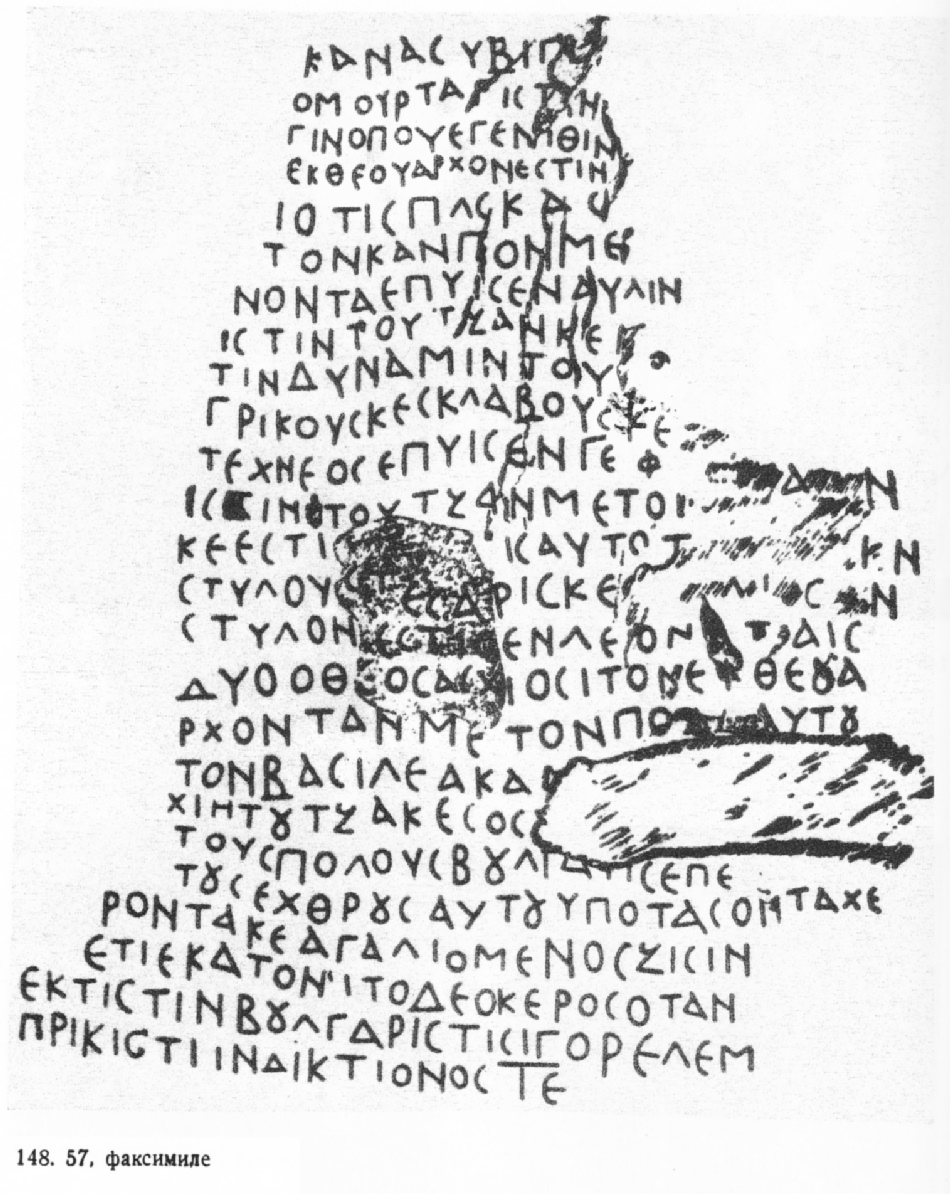 ΚΑΝΑСΥΒΙΓ
ΟΜΟΥΡΤΑΓ ΙС ΤΙΝ
ΓΙΝΟΠΟΥΕΓΕΝΙΘΙΝ
ΕΚΘΕΟΥΑΡΧΟΝΕСΤΙΝ
ΙΟΤΙСΠΛСΚΑС
ΤΟΝΚΑΝΠΟΝΜΕ
ΝΟΝΤΑΕΠΥΙСΕΝΑΥΛΙΝ
ΙСΤΙΝΤΟΥΤΖΑΝΚΕ
ΤΙΝΔΥΝΑΜΙΝΤΟΥ
ΓΡΙΚΟΥСΚΕСΚΛΑΒΟΥСΚΕ
ΤΕΧΝΕΟСΕΠΥΙСΕΝΓΕΦ
ΙСΤΙΝΤΟΥΤΖΑΝΜΕΤΟΙ
ΚΕΕСΤΙ ΙСΑΥΤΟΤ ΚΝ
СΤΥΛΟΥСΤΕСΑΡΙСΚΕ
СΤΥΛΟΝΕСΤΙСΕΝΛΕΟΝΤΑΙС
ΔΥΟΟΘΕΟСΑΞΙΟСΙΤΟΝΕΚΘΕȣΑ
ΡΧΟΝΤΑΝΜΕΤΟΝΠΟΔΑΑΥΤȣ
ΤΟΝΒΑСΙΛΕΑΚΑ
ΧΙΗΤȣΤΖΑΚΕСΟС
ΤΟΥСΠΟΛΟΥСΒȣΛΓΑΡΙСΕΠΕ
ΤȣСΕΧΘΡȣСΑΥΤȣΥΠΟΤΑСΟΝΤΑΧΕ
ΡΟΝΤΑΚΕΑΓΑΛΙΟΜΕΝΟСΖΙСΙΝ
ΕΤΙΕΚΑΤΟΝΙΤΟΔΕΟΚΕΡΟСΟΤΑΝ
ΕΚΤΙСΤΙΝΒȣΛΓΑΡΙСΤΙСΙΓΟΡΕΛΕΜ
ΠΡΙΚΙСΤΙΙΝΔΙΚΤΙΟΝΟСΤΕ
148. 57, факсимиле